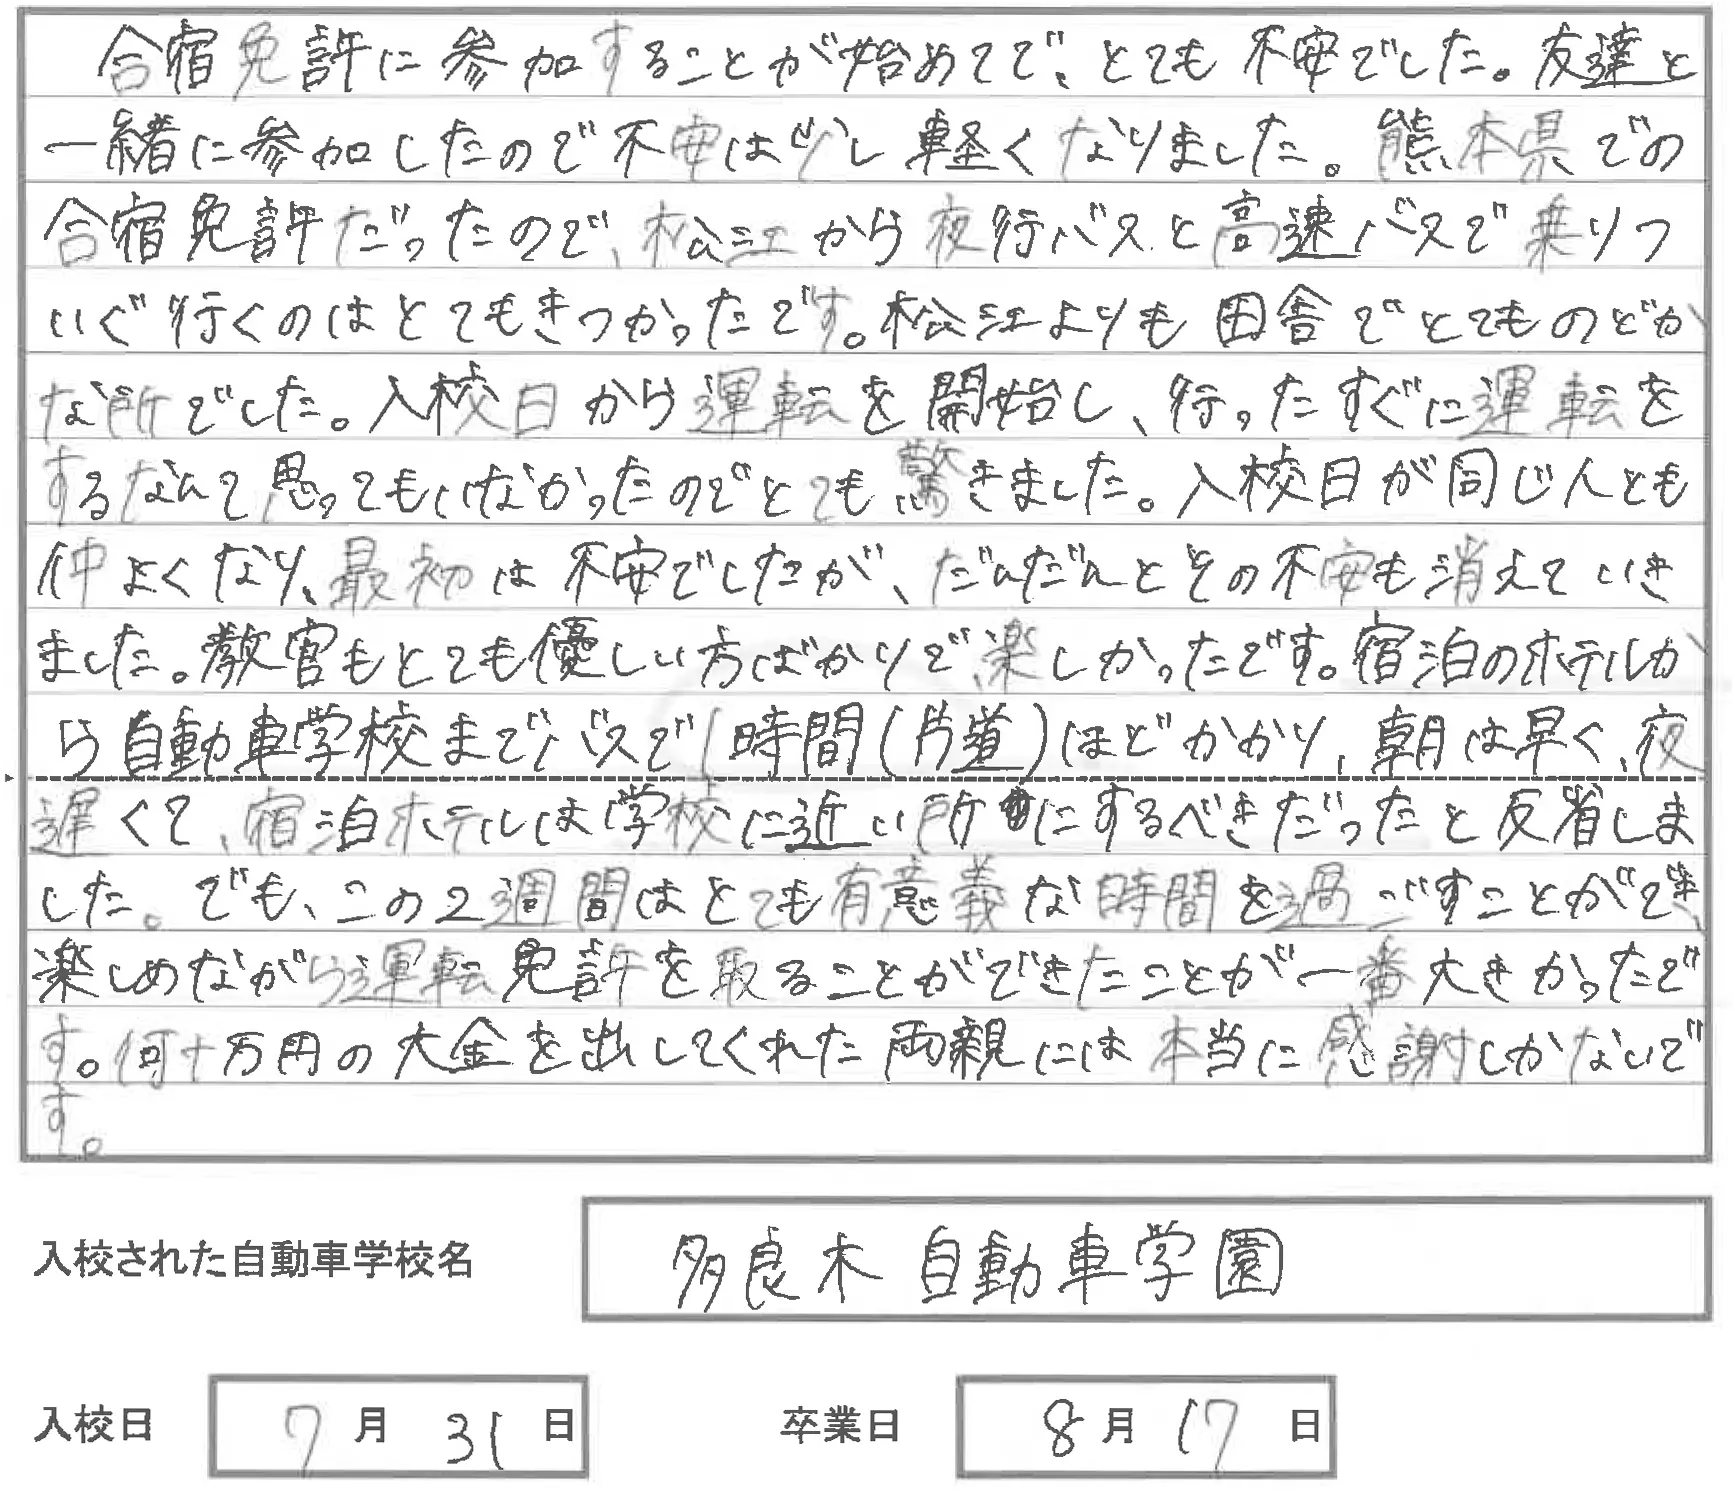 合宿免許に参加することが始めてで、とても不安でした。友達と
一緒に参加したので不安は少し軽くなりました。熊本県での
合宿免許だったので、松江から夜行バスと高速バスで乗りつ
いで行くのはとてもきつかったです。松江よりも田舎でとてものどか
な所でした。入校日から運転を開始し、行ったすぐに運転を
するなんて思ってもいなかったのでとても驚きました。入校日が同じ人とも
仲よくなり、最初は不安でしたが、だんだんとその不安も消えていき
ました。教官もとても優しい方ばかりで楽しかったです。宿泊のホテルか
ら自動車学校までバスで1時間(片道)ほどかかり、朝は早く、夜
遅くて、宿泊ホテルは学校に近い所にするべきだったと反省しま
した。でも、この2週間はとても有意義な時間を過ごすことができ、
楽しめながら運転免許を取ることができたことが一番大きかったで
す。何十万円の大金を出してくれた両親には本当に感謝しかないで
す。
入校された自動車学校名 多良木自動車学園
入校日 7月31日 卒業日 8月17日